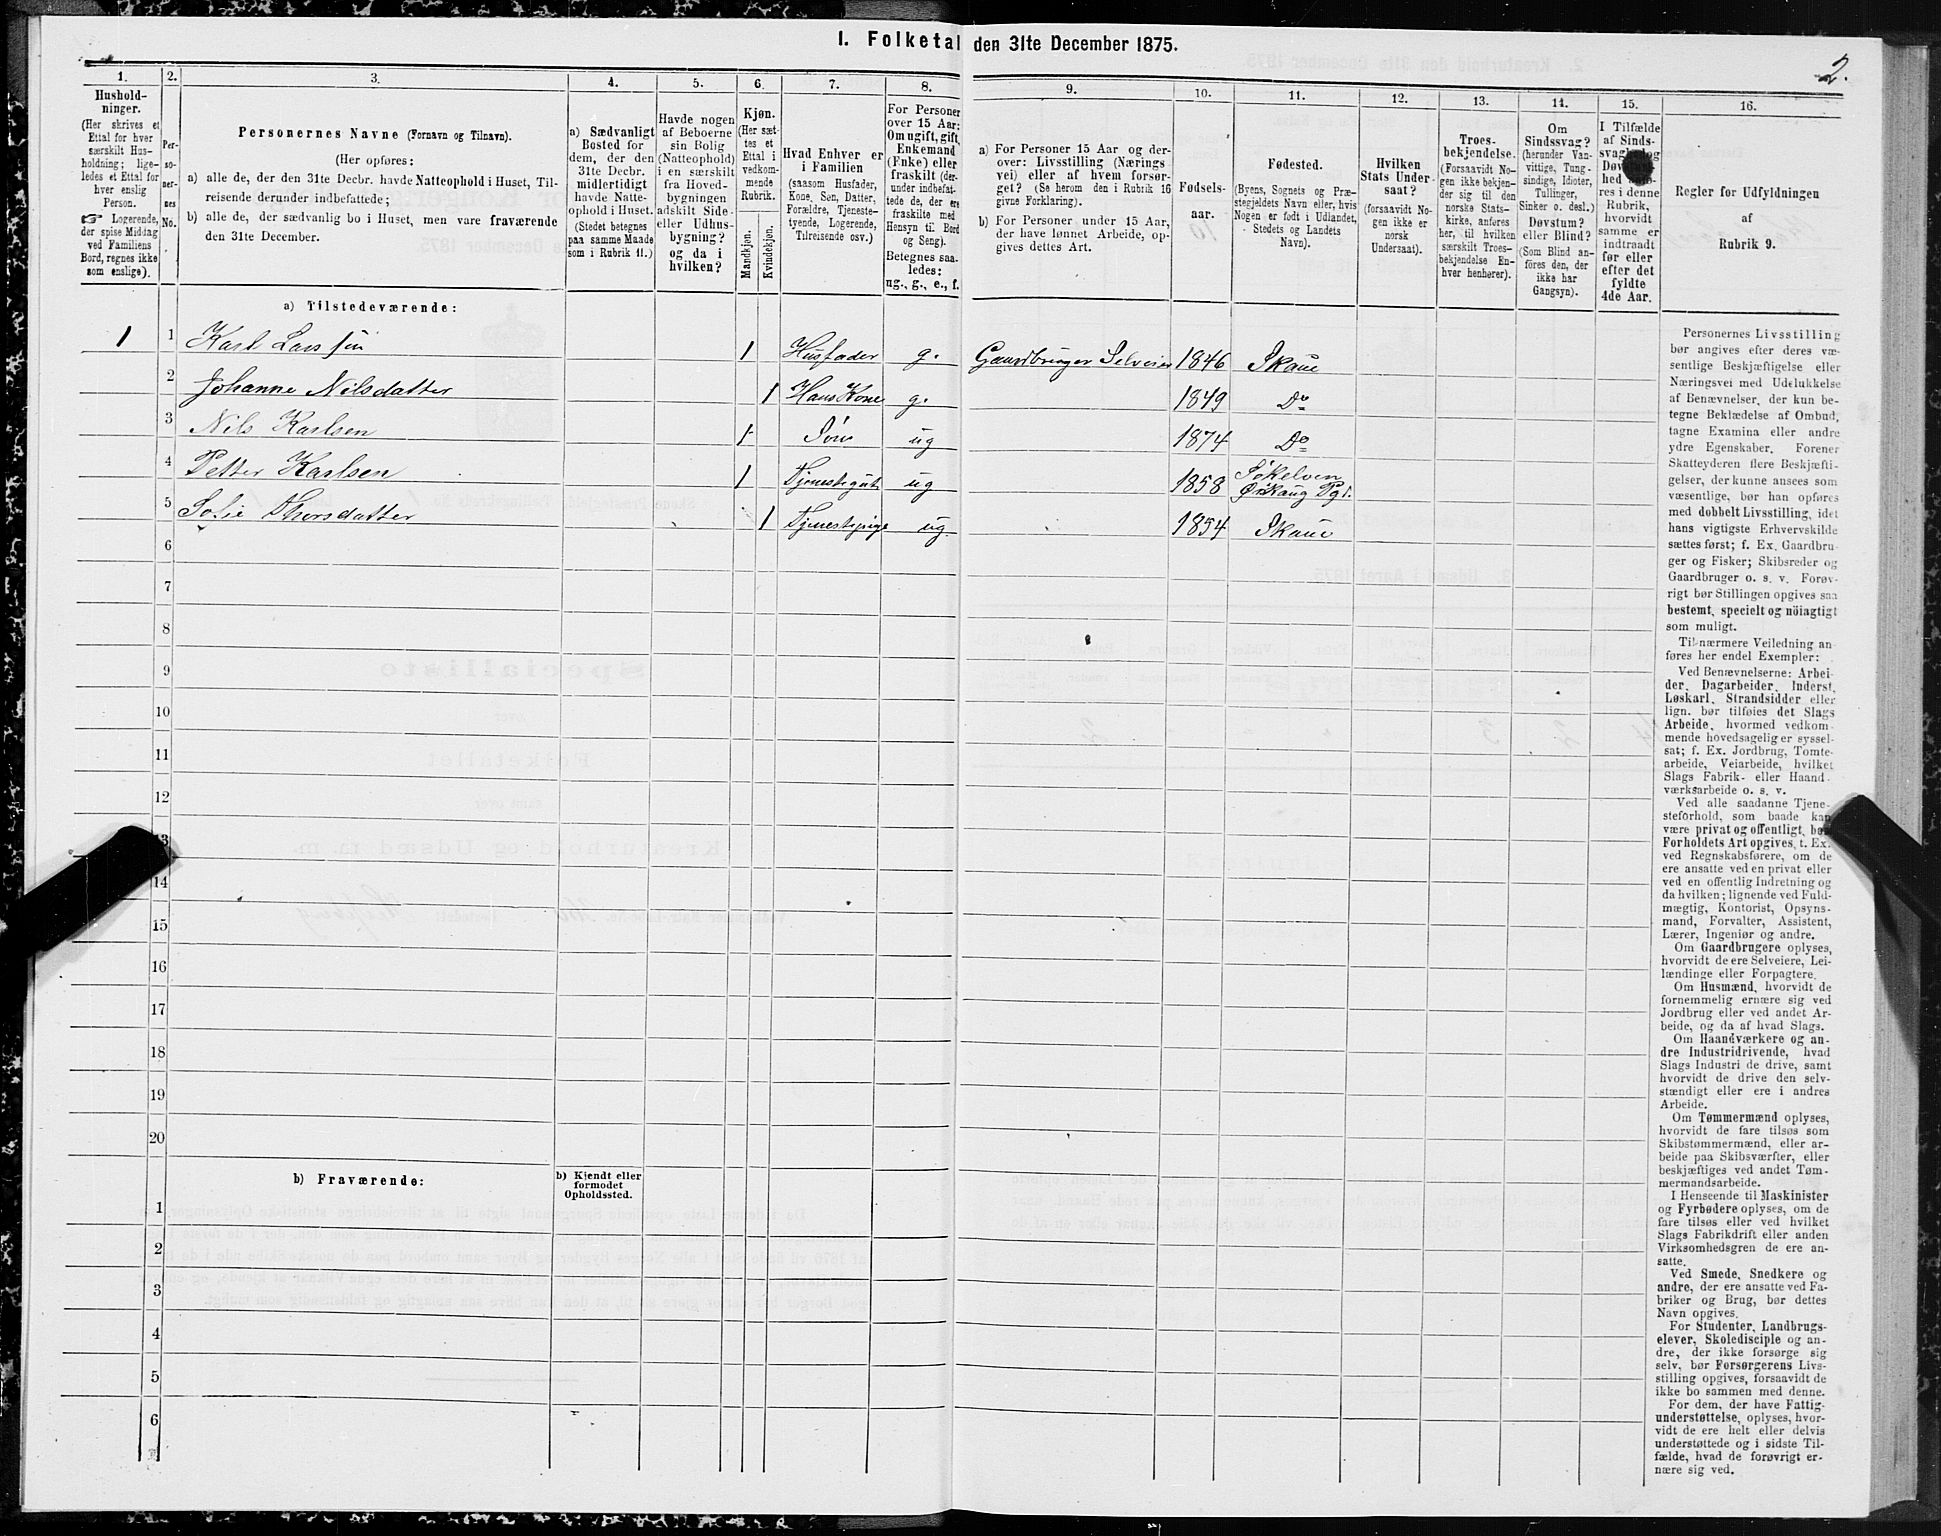 I. Folketal den 31te December 1875.
2.
1.
Hushold-
ninger.
(Her skrives et
Ettal for hver
særskilt Hus-
holdning; lige-
ledes et Ettal for
hver enslig
Person.
☞ Logerende,
der spise Middag
ved Familiens
Bord, regnes ikke
som enslige).
2.
Per-
so-
ner-
nes
No.
3.
Personernes Navne (Fornavn og Tilnavn).
(Her opføres:
a) alle de, der den 31te Decbr. havde Natteophold i Huset, Til-
reisende derunder indbefattede;
b) alle de, der sædvanlig bo i Huset, men vare fraværende
den 31te December.
4.
a) Sædvanligt
Bosted for
dem, der den
31te Decbr.
midlertidigt
havde Natte-
ophold i Huset.
(Stedet betegnes
paa samme Maade
som i Rubrik 11.)
5.
Havde nogen
af Beboerne
sin Bolig
(Natteophold)
i en særskilt
fra Hoved-
bygningen
adskilt Side-
eller Udhus-
bygning?
og da i
hvilken?
6.
Kjøn.
(Her sæt-
tes et
Ettal i
vedkom-
mende
Rubrik.
Mandkjøn.
Kvindekjøn.
7.
Hvad Enhver er
i Familien
(saasom Husfader,
Kone, Søn, Datter,
Forældre, Tjeneste-
tyende, Logerende,
Tilreisende osv.)
8.
For Personer
over 15 Aar:
Om ugift, gift,
Enkemand
(Enke) eller
fraskilt (der-
under indbefat-
tede de, der ere
fraskilte med
Hensyn til Bord
og Seng).
Betegnes saa-
ledes:
ug., g., e., f.
9.
a) For Personer 15 Aar og der-
over: Livsstilling (Nærings
vei) eller af hvem forsør-
get? (Se herom den i Rubrik 16
givne Forklaring).
b) For Personer under 15 Aar,
der have lønnet Arbeide, op-
gives dettes Art.
10.
Fødsels-
aar.
11.
Fødested.
(Byens, Sognets og Præ-
stegjeldets Navn eller, hvis
Nogen er født i Udlandet,
Stedets og Landets
Navn).
12.
Hvilken
Stats Under-
saat?
(forsaavidt No-
gen ikke er
norsk
Undersaat).
13.
Troes-
bekjendelse.
(Forsaavidt No-
gen ikke bekjen-
der sig til den
norske Stats-
kirke, anføres
her, til hvilken
særskilt Troes-
bekjendelse En-
hver henhører).
14.
Om
Sindssvag?
(herunder Van-
vittige, Tung-
sindige, Idioter,
Tullinger,
Sinker o. desl.)
Døvstum?
eller Blind?
(Som Blind an-
føres den, der
ikke har
Gangsyn).
15.
I Tilfælde
af Sinds-
svaghed og
res i denne
Rubrik,
hvorvidt
samme er
indtraadt
før eller
efter det
fyldte
4de Aar.
16.
Regler for Udfyldningen
af
Rubrik 9.
a) Tilstedeværende:
1 1 Karl Larssön 1 Husfader g. Gaardbruger Selveier 1846 Skaue
2 Johanne Nilsdatter 1 Hans Kone g. 1849 Do
3 Nils Karlsen 1 Søn ug 1874 Do
4 Petter Karlsen 1 Tjenestegut ug 1858 Sökelven
Ørskaug Pgl.
5 Sofie Thorsdatter 1 Tjenestepige ug. 1854 Skaue
6
7
8
9
10
11
12
13
14
15
16
17
18
19
20
b) Fraværende:
b) Kjendt eller
formodet
Opholdssted.
1
2
3
4
5
6
Personernes Livsstilling
bør angives efter deres væ-
sentlige Beskjæftigelse eller
Næringsvei med Udelukkelse
af Benævnelser, der kun be-
tegne Beklædelse af Ombud,
tagne Examina eller andre
ydre Egenskaber. Forener
Skatteyderen flere Beskjæfti-
gelser, der kunne ansees som
væsentlige, bør han opføres
med dobbelt Livsstilling, idet
hans vigtigste Erhvervskilde
sættes først; f. Ex. Gaardbru-
ger og Fisker; Skibsreder og
Gaardbruger o. s. v. Forøv-
rigt bør Stillingen opgives saa
bestemt, specielt og nöiagtigt
som muligt.
Til nærmere Veiledning an-
føres her endel Exempler:
Ved Benævnelserne: Arbei-
der, Dagarbeider, Inderst,
Løskarl, Strandsidder eller
lign. bør tilføies det Slags
Arbeide, hvormed vedkom-
mende hovedsagelig er syssel-
sat; f. Ex. Jordbrug, Tomte-
arbeide, Veiarbeide, hvilket
Slags Fabrik- eller Haand-
værksarbeide o. s. v.
Ved alle saadanne Tjene-
steforhold, som baade kan
være privat og offentligt, bør
Forholdets Art opgives, t. Ex.
ved Regnskabsførere, om de
ere ansatte ved en privat eller
ved en offentlig Indretning og
da hvilken; lignende ved Fuld-
mægtig, Kontorist, Opsyns-
mand, Forvalter, Assistent,
Lærer, Ingeniør og andre.
Om Gaardbrugere oplyses,
hvorvidt de ere Selveiere, Lei-
lændinge eller Forpagtere.
Om Husmænd, hvorvidt de
fornemmelig ernære sig ved
Jordbrug eller ved andet Ar-
beide, og da af hvad Slags.
Om Haandværkere og an-
dre Industridrivende, hvad
Slags Industri de drive, samt
hvorvidt de drive den selv-
stændigt eller ere i andres
Arbeide.
Om Tømmermænd oplyses,
hvorvidt de fare tilsøs som
Skibstømmermænd, eller ar-
beide paa Skibsværfter, eller
beskjæftiges ved andet Tøm-
mermandsarbeide.
I Henseende til Maskinister
og Fyrbødere oplyses, om de
fare tilsøs eller ved hvilket
Slags Fabrikdrift eller anden
Virksomhedsgren de ere an-
satte.
Ved Smede, Snedkere og
andre, der ere ansatte ved Fa-
briker og Brug, bør dettes
Navn opgives
For Studenter, Landbrugs-
elever, Skoledisciple og an-
dre, der ikke forsørge sig
selv, bør Forsørgerens Livs-
stilling opgives, forsaavidt de
ikke bo sammen med denne.
For dem, der have Fattig-
understøttelse, oplyses, hvor-
vidt de ere helt eller delvis
understøttede og i sidste Til-
fælde, hvad de forøvrigt er-
nære sig ved.